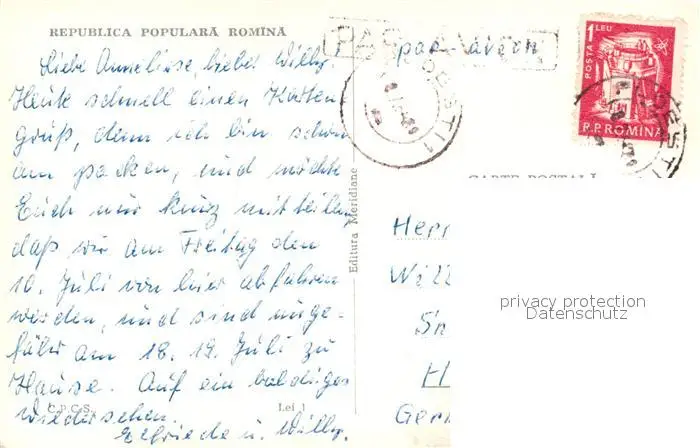 REPUBLICA POPULARĂ ROMÎNĂ
Liebe Anneliese, lieber Willy.
Heute schnell einen Karten
gruß, denn ich bin schon
am packen, und möchte
Euch nur kurz mitteilen,
daß wir am Freitag den
10. Juli von hier abfahren
werden, und sind unge-
fähr am 18. 19. Juli zu
Hause. Auf ein baldiges
Wiedersehen
Elfriede u. Willy.
C.P.C.S.
Lei 1
Editura Meridiane
par avion
PAR AVION
POSTA 1 LEU
P.P. ROMINA
CARTE POSTALĂ
Herr
Will
H
Ger
privacy protection
Datenschutz